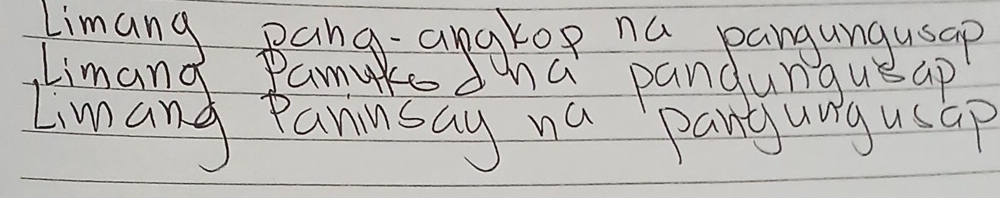 Limang pang-angkop na pangungusap
Limang Pamuked na pandungusap
Limang Paninsay na pangungusap